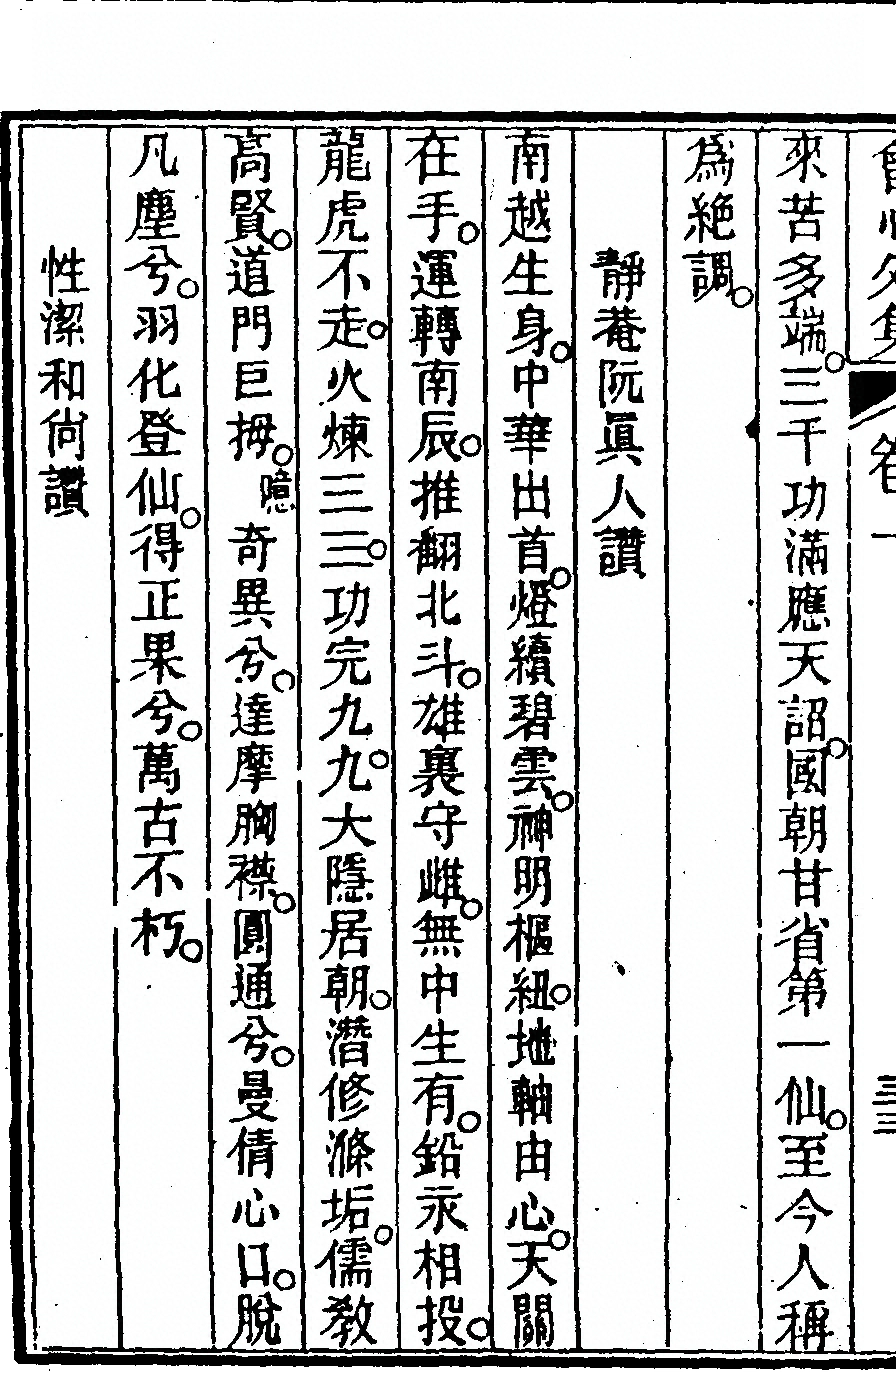 會心外集 卷一 三三
來苦多端。三千功滿應天詔。國朝甘省第一仙。至今人稱
爲絶調。
靜菴阮眞人讚
南越生身。中華出首。燈續碧雲。神明樞紐。地軸由心。天關
在手。運轉南辰。推翻北斗。雄裏守雌。無中生有。鉛汞相投。
龍虎不走。火煉三三。功完九九。大隱居朝。潛修滌垢。儒教
高賢。道門巨拇。噫奇異兮。達摩胸襟。圓通兮。曼倩心口。脫
凡塵兮。羽化登仙。得正果兮。萬古不朽。
性潔和尙讚